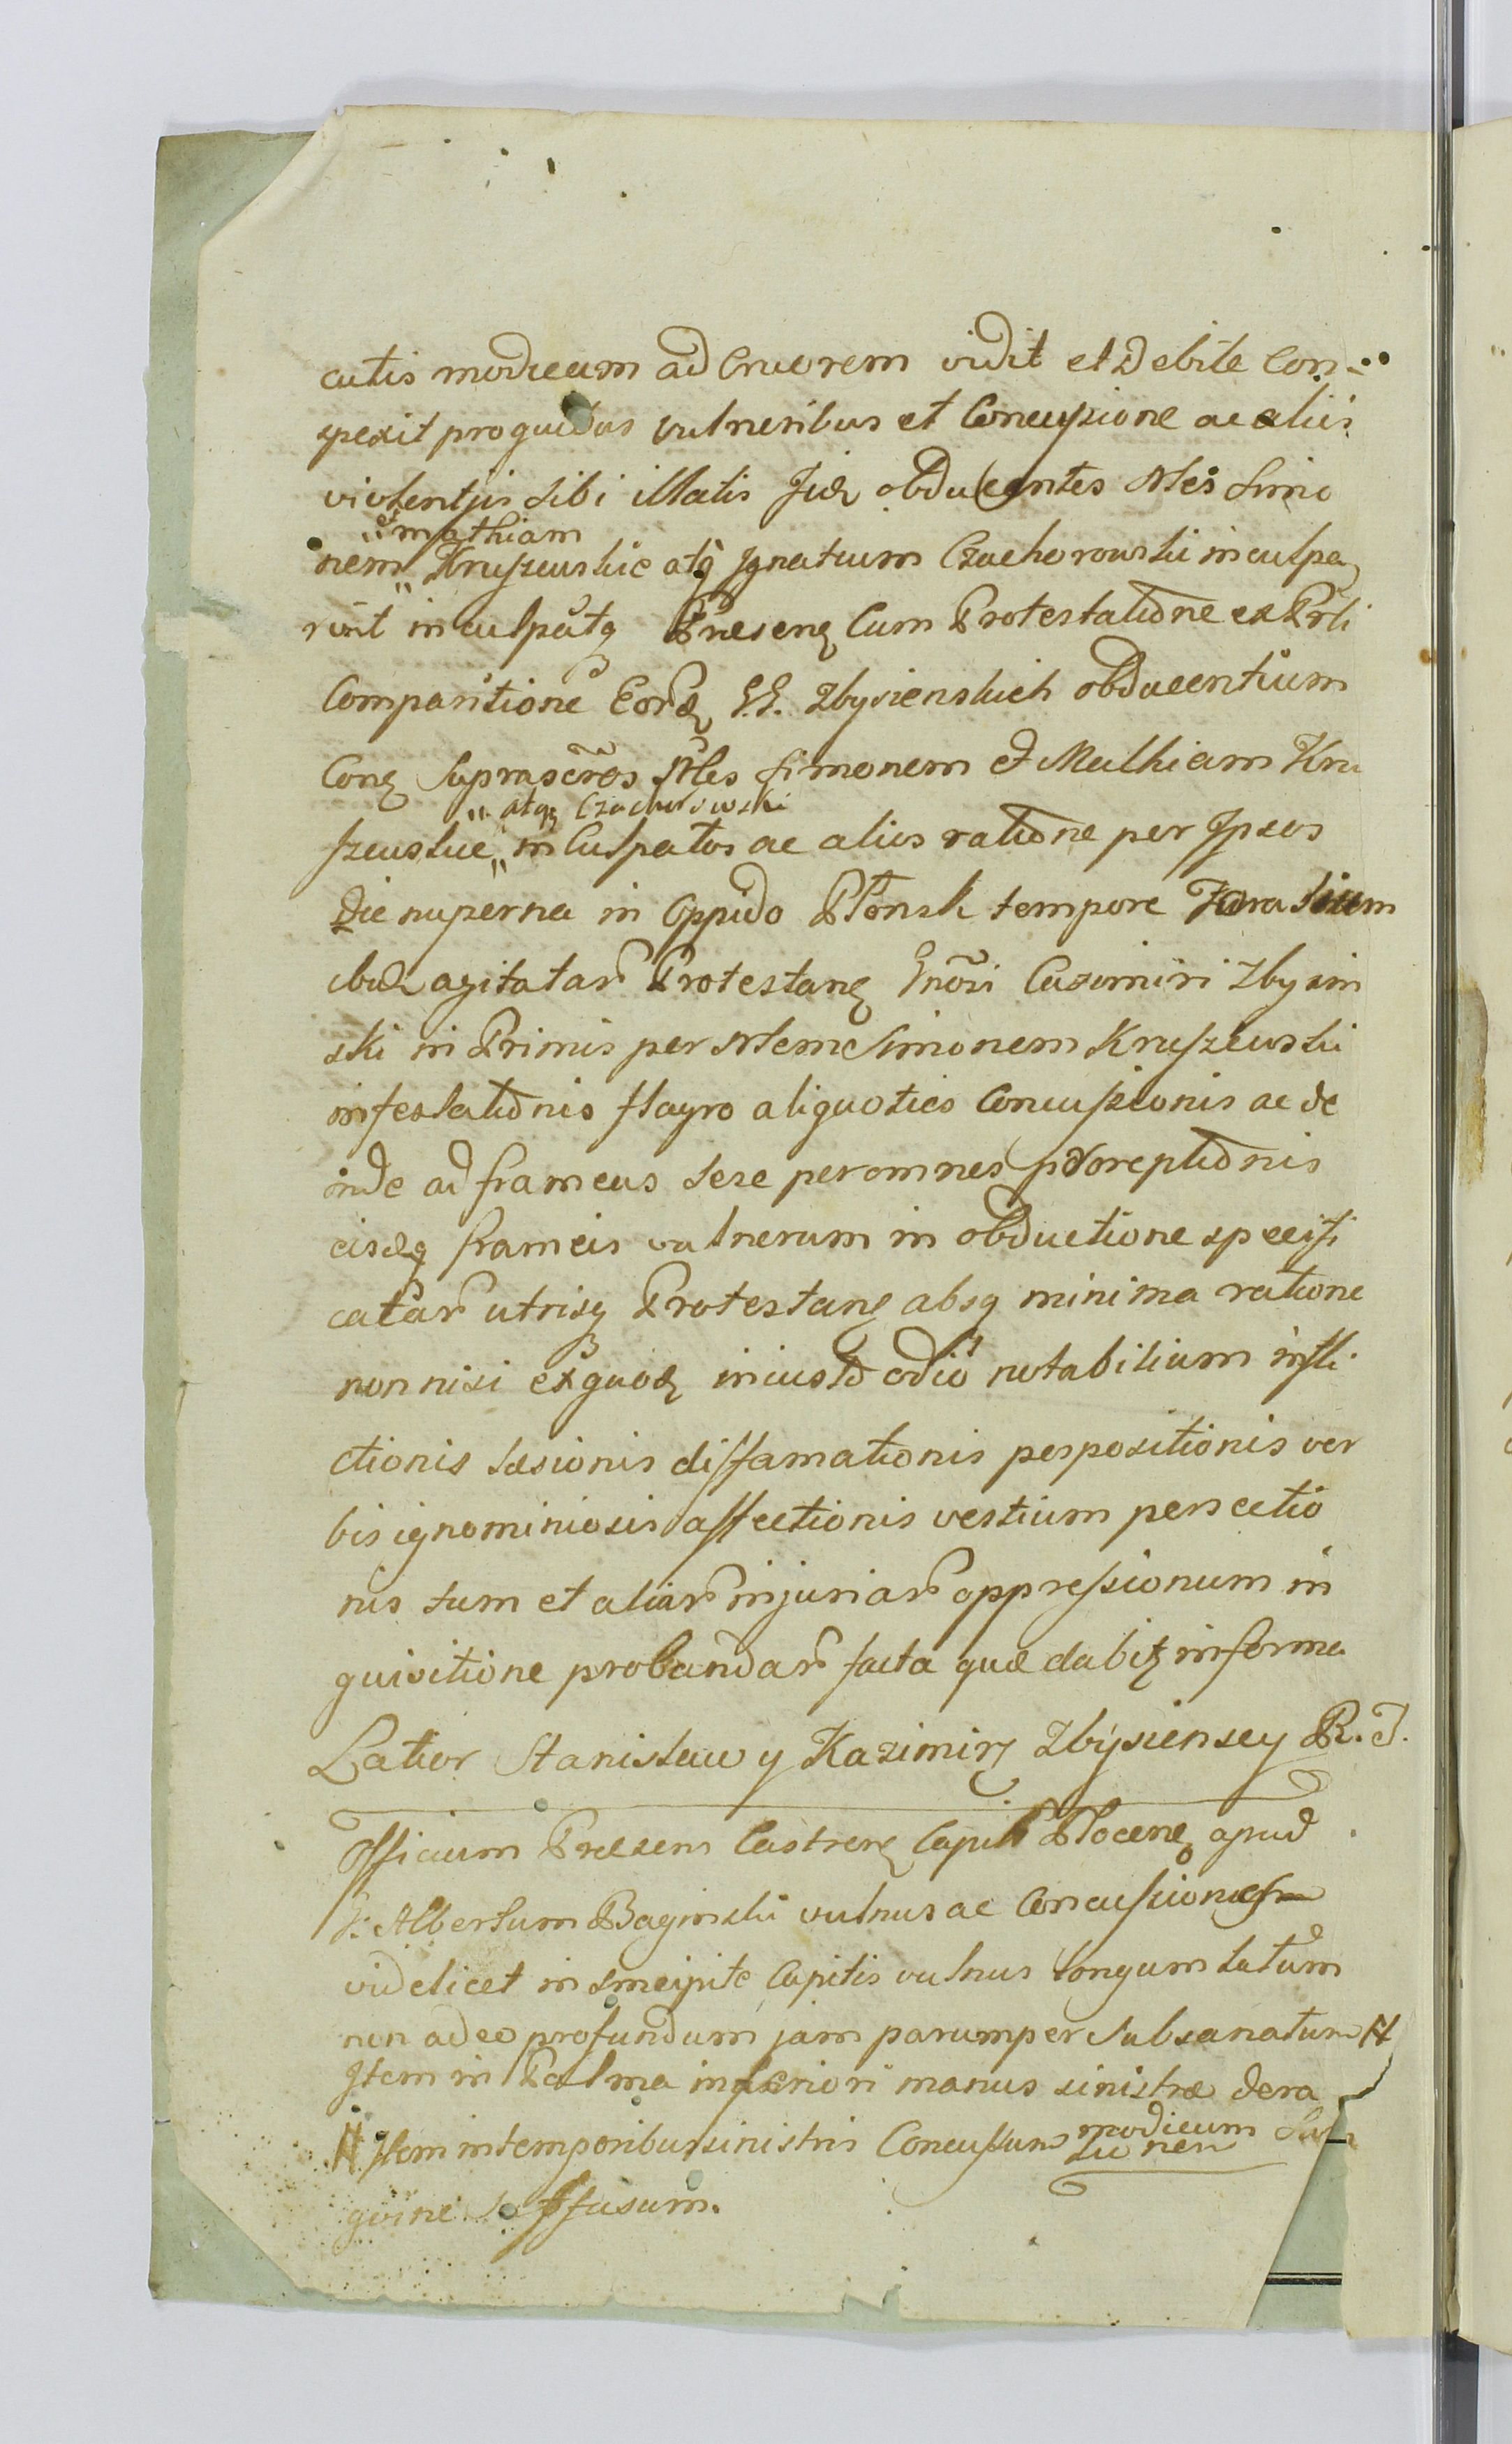 cutis modicum ad Cruorem vidit et Debite Con-
spexit pro quibus vulneribus et Concussione ac aliis
violentijs sibi illatis Jid obducentes Nles Simo
et Mathiam
nem Kruszewskie atq Ignatium Czachorowski inculpa
runt inculpatq Praesens Cum Protestatione ex Prli
Comparitione Eord G.G. Zbysienskich obducentium
Conq Suprascros Nles Simonem et Mathiam Kru
atq Czachorowski
szewskie in Culpatos ac alios ratione per Ipsos
Die nuperna in Oppido Płonsk tempore Fora lium
ibid agitatar Protestanq Gnosi Casimiri Zbysin
ski in Primis per Nlem Simonem Kruszewski
infestationis flagro aliquoties Concussionis ac de
inde ad frameas sese per omnes proreptionis
eisdq frameis vulnerum in obductione specifi
catar utrisq Protestanq absq minima ratione
non nisi ex quod iniusto odio notabilium infli
ctionis laesionis diffamationis pospositionis ver
bis ignominiosis affectionis vestium persectio
nis tum et aliar injuriar oppressionum in
quisitione probandar facta quae dabit in forma
Lator Stanisław y Kazimirz Zbysienscy R. T.
Officium Praesens Castren Capit Plocen apud
G. Albertum Baginski vulnus ac Concussionem
videlicet in sincipite Capitis vulnus longum latum
non adeo profundum jam parumper subsanatum #
Item in Palma inferiori manus sinistrae dexa
# Item in temporibus sinistris Concussum modicum San
guine suffusum.